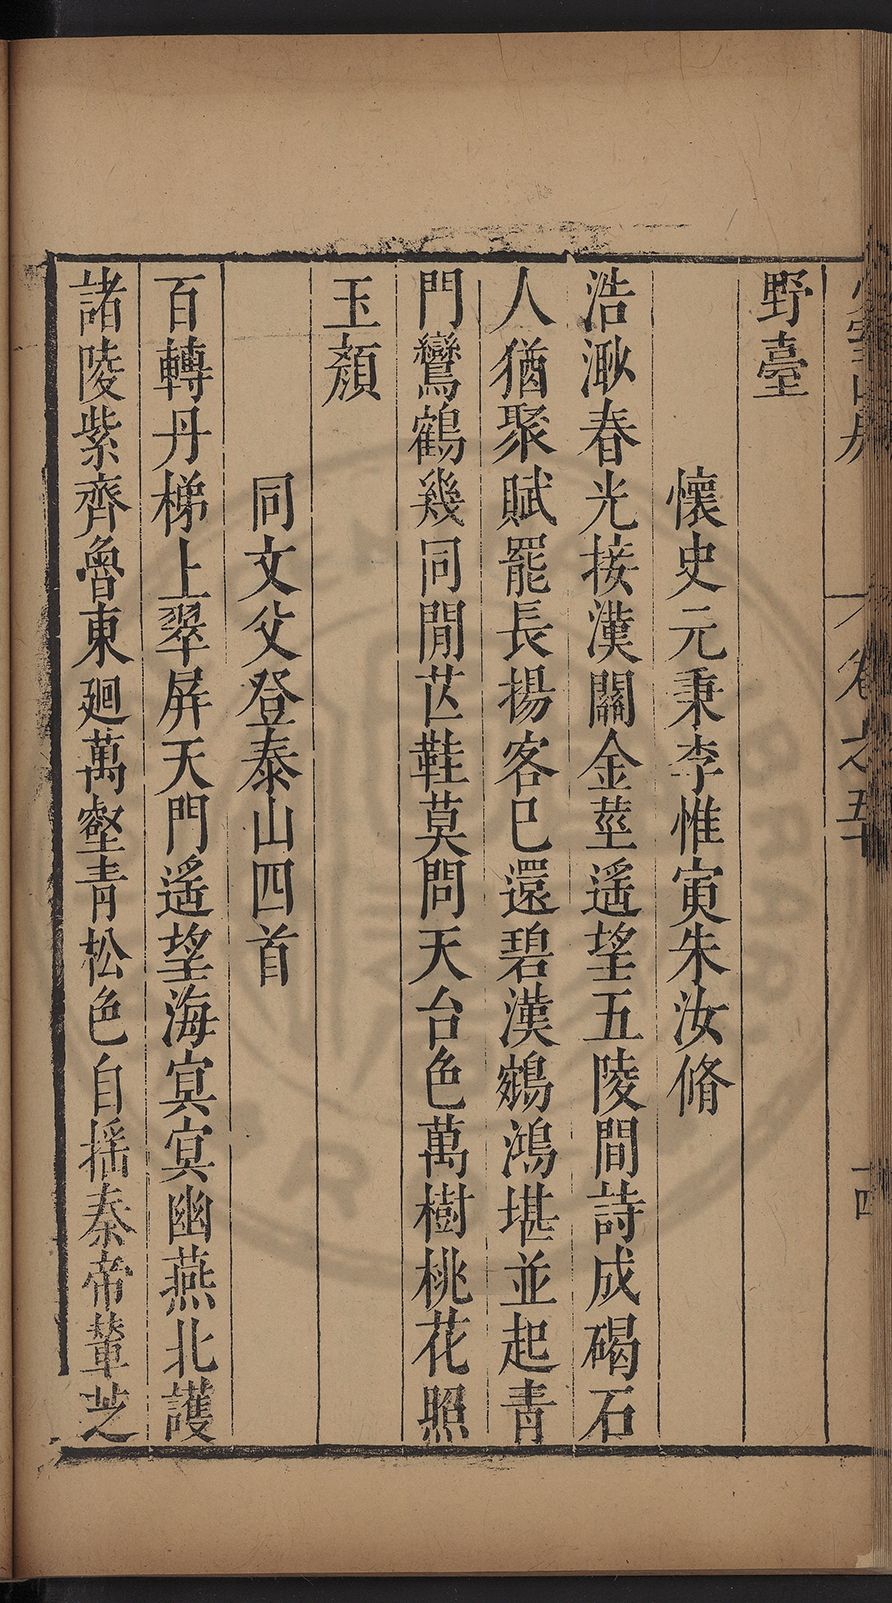 野臺
懷史元秉李惟寅朱汝脩
浩溆春光接漢關金莖遥望五陵間詩成碣石
人猶聚賦罷長揚客已還碧漢鵷鴻堪並起青
門鸞鶴幾同閒芒鞋莫問天台色萬樹桃花照
玉顏
同文父登泰山四首
百轉丹梯上翠屏天門遥望海冥冥幽燕北護
諸陵紫齊魯東廻萬壑青松色自揺秦帝輦芝